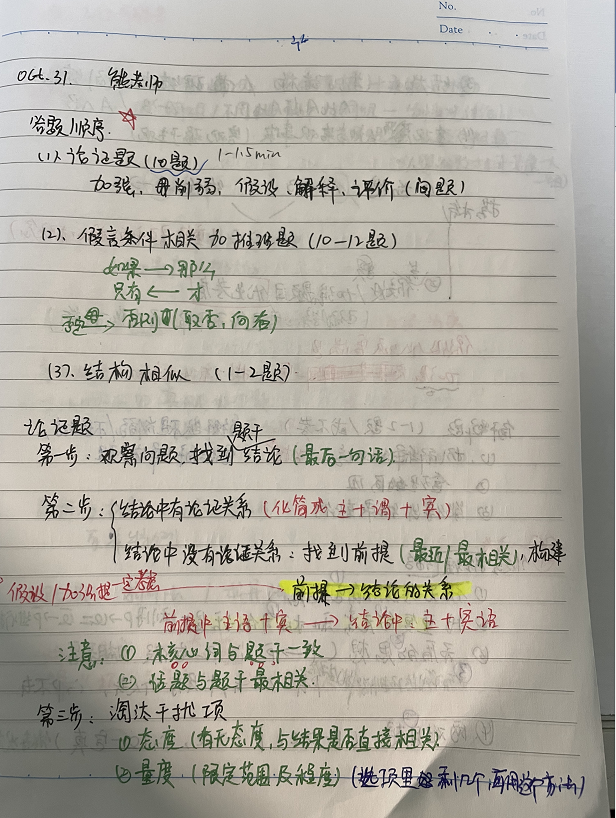 No.
Date
Oct. 31. 熊老师
答题顺序.
(1) 论证题 (10题) 1-1.5min
加强, 削弱, 假设, 解释, 评价 (问题)
(2). 假言条件相关 加推理题 (10-12题)
如果 → 那么
只有 ← 才
→ 否则 (取否, 向右)
(3). 结构相似 (1-2题).
论证题
第一步: 观察问题, 找到题干结论 (最后一句话)
第二步: 结论中有论证关系 (化简成主+谓+宾)
结论中没有论证关系: 找到前提 (最近/最相关), 构建
假设/加强提一定考虑 前提 → 结论的关系
前提中主语+宾 → 结论中: 主+宾语
注意: (1) 核心词与题干一致
(2) 话题与题干最相关.
第三步: 淘汰干扰项
① 态度 (有无态度, 与结果是否直接相关)
② 量度 (限定范围及程度) (选项里剩几个再用这个方法)